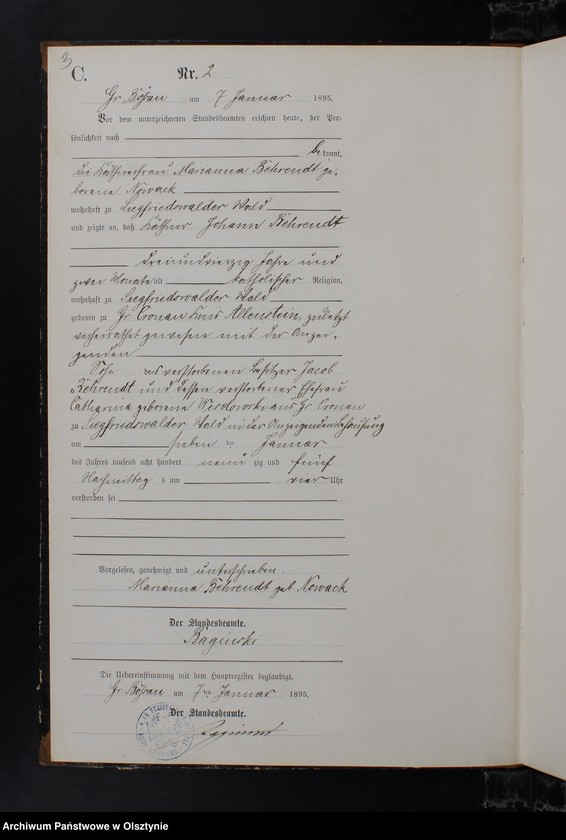 3
C.
Nr. 2
Gr. Bößau am 7 Januar 1895.
Vor dem unterzeichneten Standesbeamten erschien heute, der Per-
sönlichkeit nach
be kannt,
die Käthnerfrau Marianna Behrendt ge-
borene Nowack
wohnhaft zu Siegfriedswalder Wald
und zeigte an, daß Käthner Johann Behrendt
dreiundvierzig Jahre und
zwei Monate alt katholischer Religion,
wohnhaft zu Siegfriedswalder Wald
geboren zu Gr. Cronau Kreis Allenstein, zuletzt
verheirathet gewesen mit der Anzei-
genden
Sohn des verstorbenen Besitzer Jacob
Behrendt und dessen verstorbener Ehefrau
Catharina geborene aus Gr. Cronau
zu Siegfriedswalder Wald in der Anzeigenden Behausung
am sieben ten Januar
des Jahres tausend acht hundert neun zig und fünf
Nachmittag s um vier Uhr
verstorben sei
Vorgelesen, genehmigt und unterschrieben
Marianna Behrendt geb. Nowack
Der Standesbeamte.
Raginski
Die Uebereinstimmung mit dem Hauptregister beglaubigt.
Gr. Bößau am 7 ten Januar 1895.
Der Standesbeamte.
Archiwum Państwowe w Olsztynie